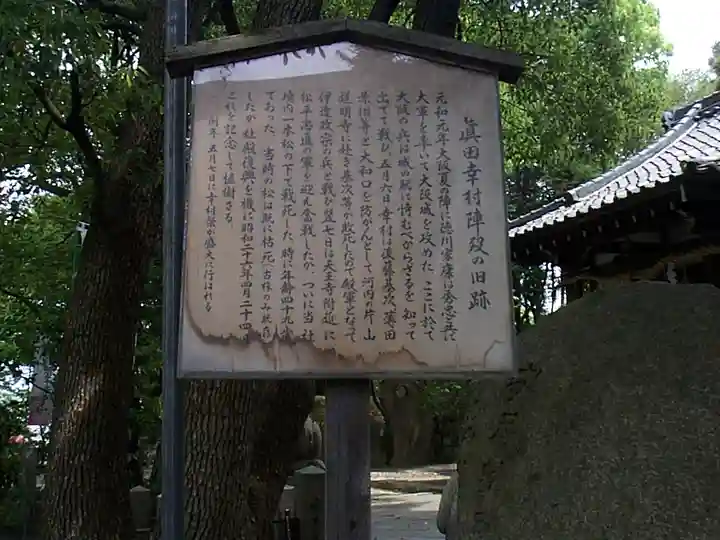 眞田幸村陣歿の旧跡
元和元年大阪夏の陣に徳川家康は秀忠と共に
大軍を率いて大阪城を攻めた ここに於て
大阪の兵は城の賴に恃むべからざるを知って
出でて戦ひ 五月六日幸村は後藤基次、薄田
兼相等と大和口を防がんとして河内の片山
道明寺に赴き基次等が敗死したので殿軍となって
伊達政宗の兵と戦ひ翌七日は天王寺附近に
松平忠直の軍を迎え奮戦したが、ついに当社
境内一本松の下で戦死した 時に年齢四十九才
であった 当時の松は既に枯死(古株のみ現存)
したが社殿復興を機に昭和二十六年四月二十四
これを記念して植樹さる
例年 五月七日に幸村祭が盛大に行はれる